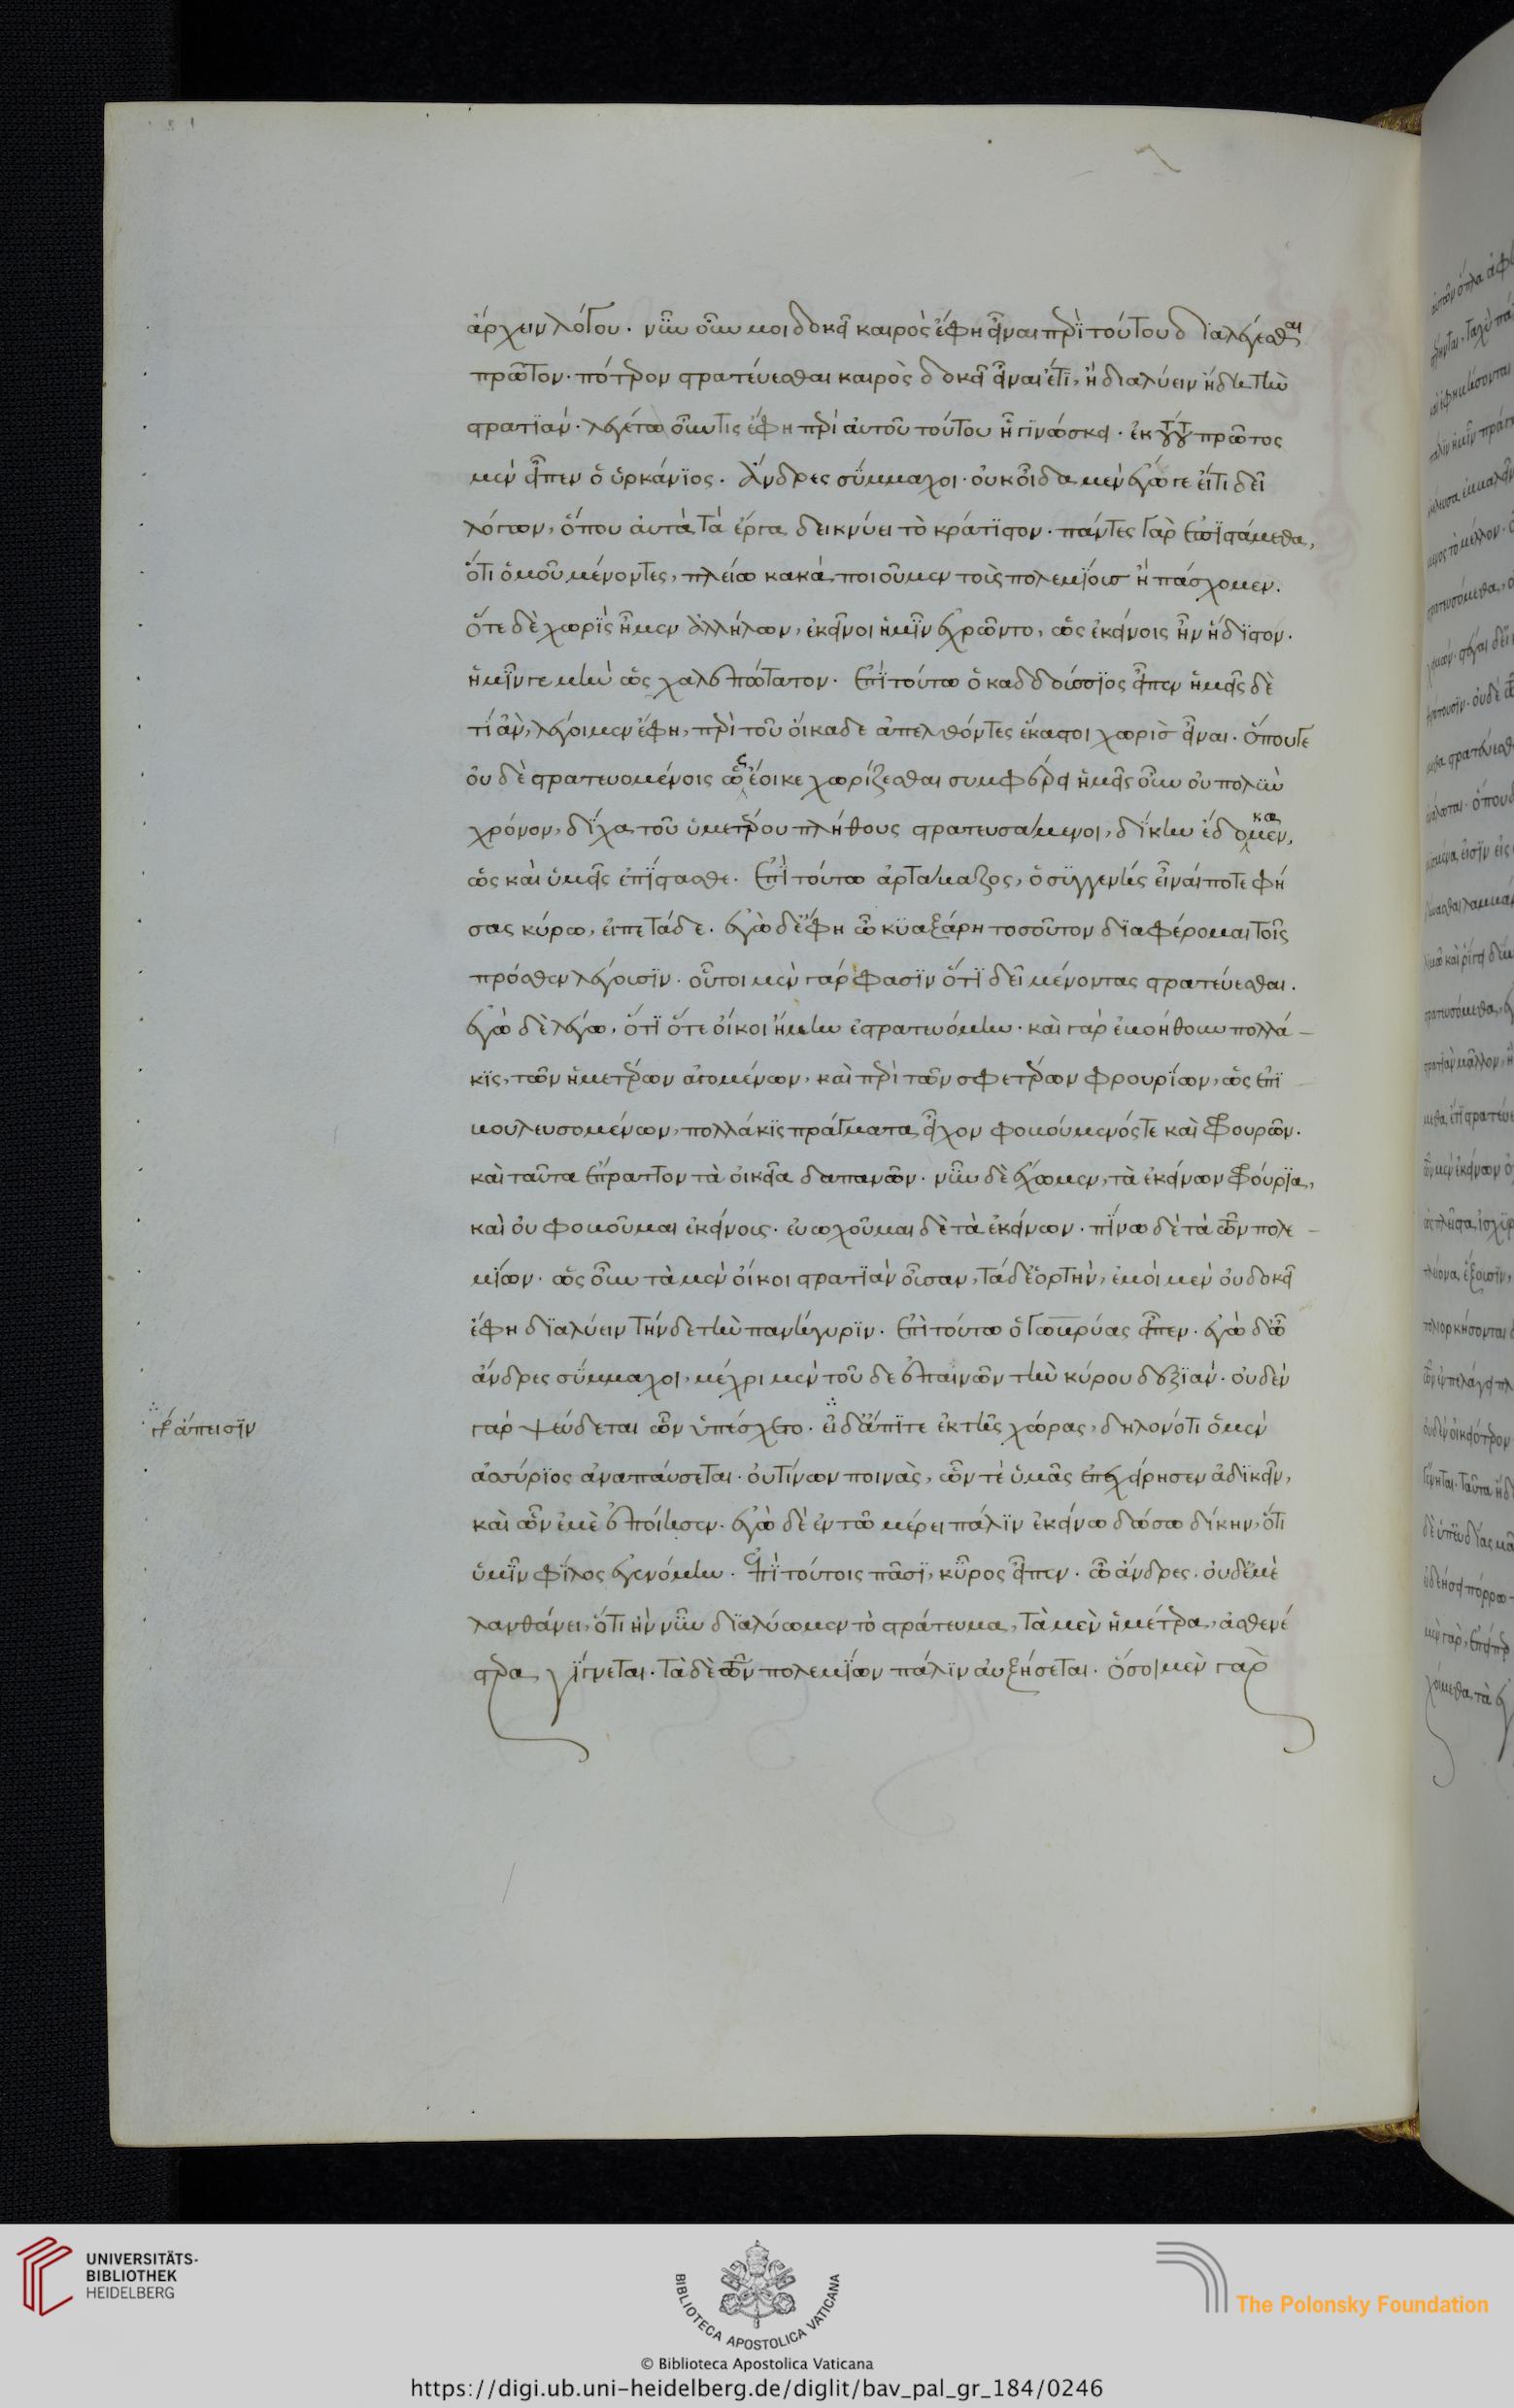 ἄρχειν λόγου. νῦν οὖν μοι δοκεῖ καιρὸς ἔφη εἶναι περὶ τούτου διαλέγεσθαι
πρῶτον. πότερον στρατεύεσθαι καιρὸς δοκεῖ εἶναι ἔτι, ἢ διαλύειν ἤδη τὴν
στρατιάν. λεγέτω οὖν τις ἔφη περὶ αὐτοῦ τούτου ᾗ γινώσκει. ἐκ τούτου πρῶτος
μὲν εἶπεν ὁ ὑρκάνιος. Ἄνδρες σύμμαχοι. οὐκ οἶδα μὲν ἔγωγε εἴ τι δεῖ
λόγων, ὅπου αὐτὰ τὰ ἔργα δεικνύει τὸ κράτιστον. πάντες γὰρ ἐπιστάμεθα,
ὅτι ὁμοῦ μένοντες, πλείω κακὰ ποιοῦμεν τοὺς πολεμίοισ ἢ πάσχομεν.
ὅτε δὲ χωρὶς ἦμεν ἀλλήλων, ἐκεῖνοι ἡμῖν ἐχρῶντο, ὡς ἐκείνοις ἦν ἥδιστον.
ἡμῖν γε μὴν ὡς χαλεπώτατον. Ἐπὶ τούτω ὁ καδδούσσιος εἶπεν ἡμεῖς δὲ
τί ἂν, λέγοιμεν ἔφη, περὶ τοῦ οἴκαδε ἀπελθόντες ἕκαστοι χωρὶσ εἶναι. ὅπου γε
οὐδὲ στρατευομένοις ὡς ἔοικε χωρίζεσθαι συμφέρει ἡμεῖς οὖν οὐ πολὺν
χρόνον, δίχα τοῦ ὑμετέρου πλήθους στρατευσάμενοι, δίκην ἐδώκαμεν,
ὡς καὶ ὑμεῖς ἐπίστασθε. Ἐπὶ τούτω ἀρτάμαζος, ὁ συγγενής εἶναί ποτε φή
σας κύρω, εἶπε τάδε. ἐγὼ δ' ἔφη ὦ κυαξάρη τοσοῦτον διαφέρομαι τοῖς
πρόσθεν λέγοισιν. οὗτοι μὲν γάρ φασιν ὅτι δεῖ μένοντας στρατεύεσθαι.
ἐγὼ δὲ λέγω, ὅτι ὅτε οἴκοι ἤμην ἐστρατευόμην. καὶ γὰρ ἐβοήθουν πολλά-
κις, τῶν ἡμετέρων ἀγομένων, καὶ περὶ τῶν σφετέρων φρουρίων, ὡς ἐπι
βουλευσομένων, πολλάκις πράγματα εἶχον φοβούμενός τε καὶ φρουρῶν.
καὶ ταῦτα ἔπραττον τὰ οἰκεῖα δαπανῶν. νῦν δὲ ἔχομεν, τὰ ἐκείνων φρούρια,
καὶ οὐ φοβοῦμαι ἐκείνοις. εὐωχοῦμαι δὲ τὰ ἐκείνων. πίνω δὲ τὰ τῶν πολε-
μίων. ὡς οὖν τὰ μὲν οἴκοι στρατιὰν οὖσαν, τάδε ἑορτὴν, ἐμοὶ μὲν οὐ δοκεῖ
ἔφη διαλύειν τήνδε τὴν πανήγυριν. Ἐπὶ τούτω ὁ γωβρύας εἶπεν. ἐγὼ δ' ὦ
ἄνδρες σύμμαχοι, μέχρι μὲν τοῦδε ἐπαινῶν τὴν κύρου δεξιάν. οὐδὲν
γὰρ ψεύδεται ὧν ὑπέσχετο. εἰ δ' ἄπιτε ἐκ τῆς χώρας, δηλονότι ὁ μὲν
ἀσσύριος ἀναπαύσεται. οὐ τίνων ποινὰς, ὧν τε ὑμᾶς ἐπεχείρησεν ἀδικεῖν,
καὶ ὧν ἐμὲ ἐποίησεν. ἐγὼ δὲ ἐν τῶ μέρει πάλιν ἐκείνω δώσω δίκην, ὅτι
ὑμῖν φίλος ἐγενόμην. Ἐπὶ τούτοις πᾶσι, κῦρος εἶπεν. ὦ ἄνδρες. οὐδ' ἐμὲ
λανθάνει, ὅτι ἢν νῦν διαλύωμεν τὸ στράτευμα, τὰ μὲν ἡμέτερα, ἀσθενέ
στερα γίγνεται. τὰ δὲ τῶν πολεμίων πάλιν αὐξήσεται. ὅσοι μὲν γὰρ
ἄπεισιν
UNIVERSITÄTS-
BIBLIOTHEK
HEIDELBERG
BIBLIOTECA APOSTOLICA VATICANA
The Polonsky Foundation
© Biblioteca Apostolica Vaticana
https://digi.ub.uni-heidelberg.de/diglit/bav_pal_gr_184/0246